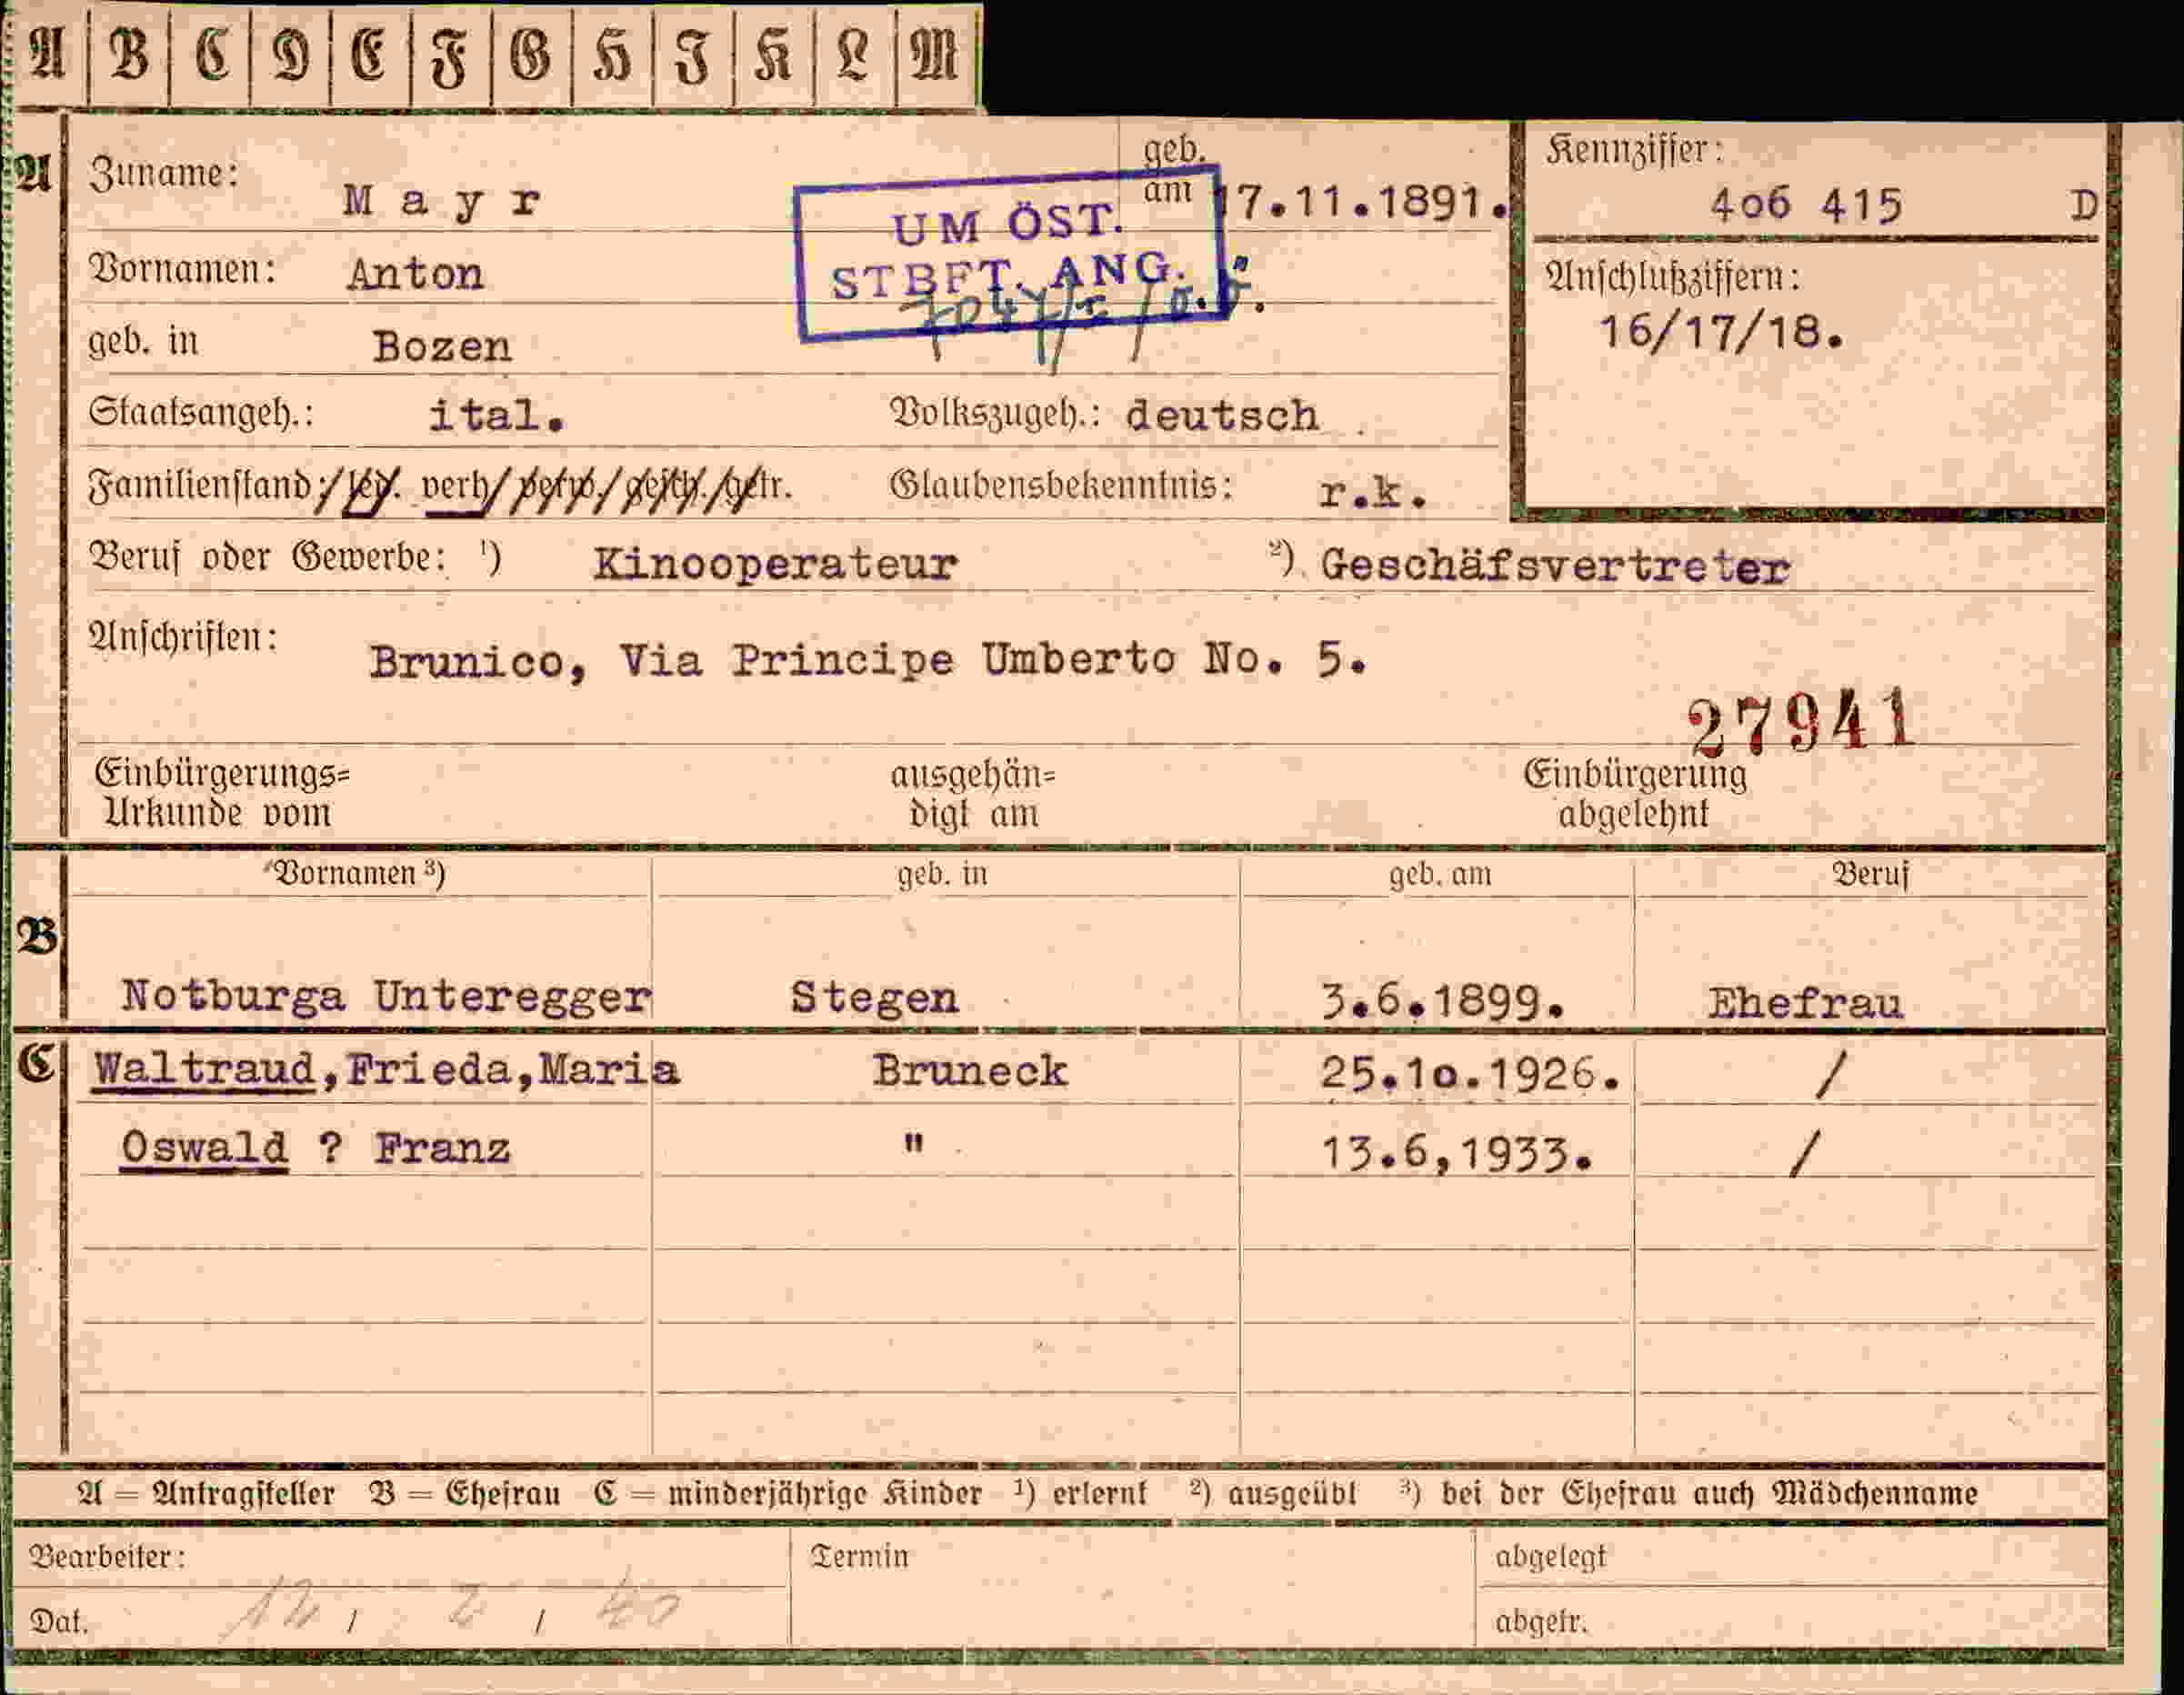 A B C D E F G H I K L M
A Zuname: Mayr geb. am 17.11.1891.
Kennziffer: 4o6 415 D
UM ÖST. STBFT. ANG.
Vornamen: Anton
Anschlußziffern: 16/17/18.
geb. in Bozen
Staatsangeh.: ital. Volkszugeh.: deutsch
Familienstand: led. verh. verw. gesch. getr. Glaubensbekenntnis: r.k.
Beruf oder Gewerbe: ¹) Kinooperateur ²) Geschäfsvertreter
Anschriften: Brunico, Via Principe Umberto No. 5.
27941
Einbürgerungs= ausgehän= Einbürgerung
Urkunde vom digt am abgelehnt
Vornamen ³) geb. in geb. am Beruf
B
Notburga Unteregger Stegen 3.6.1899. Ehefrau
C Waltraud,Frieda,Maria Bruneck 25.1o.1926. /
Oswald ? Franz " 13.6,1933. /
A = Antragsteller B = Ehefrau C = minderjährige Kinder ¹) erlernt ²) ausgeübt ³) bei der Ehefrau auch Mädchenname
Bearbeiter: Termin abgelegt
Dat. 12 / 2 / 40 abgetr.